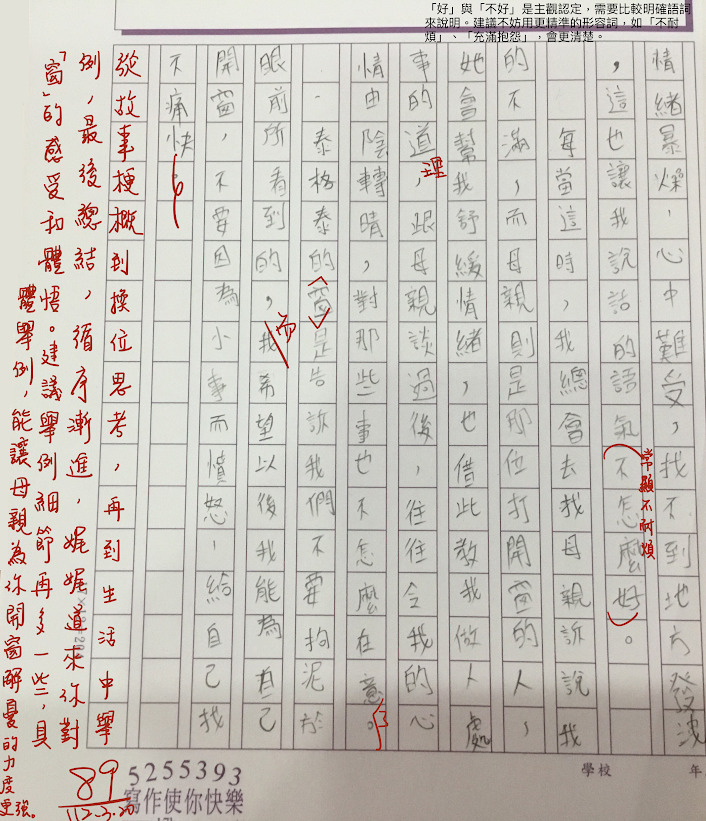 「好」與「不好」是主觀認定，需要比較明確語詞
來說明。建議不妨用更精準的形容詞，如「不耐
煩」、「充滿抱怨」，會更清楚。
情緒暴燥，心中難受，找不到地方發洩
，這也讓我說話的語氣不怎麼好。
常顯不耐煩
每當這時，我總會去找母親訴說我
的不滿，而母親則是那位打開窗的人，
她會幫我舒緩情緒，也借此教我做人處
事的道，跟母親談過後，往往令我的心
理
情由陰轉晴，對那些事也不怎麼在意。
一泰格泰的窗是告訴我們不要拘泥於
眼前所看到的，我希望以後我能為自己
而
開窗，不要因為小事而憤怒，給自己找
不痛快。
從故事梗概到換位思考，再到生活中舉
例，最後總結，循序漸進，娓娓道來你對
「窗」的感受和體悟。建議舉例細節再多一些，具
體舉例，能讓母親為你開窗解憂的力度更強。
89
112.3.20
5255393
寫作使你快樂
學校
年